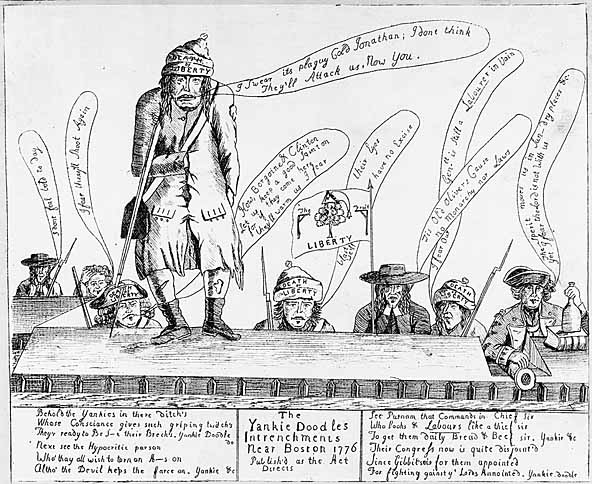 DEATH
or
LIBERTY
I Swear its plaguy Cold Jonathan; I dont think
They'll Attack us, Now You.
I dont feel bold to day
I fear they'll Shoot Again
& Clinton
if they come here
they'll warm us I fear
have no Excise
The
Tree
LIBERTY
DEATH
or
LIBERTY
is still a Labourer in Vain
Tis Old Olivers Cause
No Monarchy nor Laws
DEATH
or
LIBERTY
moves us in Sun-dry places &c
I fear the Lord is not with us
Behold the Yankies in there ditch's
Whose Consciance gives such griping twitch's
They'r ready to Be S—t their Brechs. Yankie Doodle do
Next see the Hypocritic parson
Who thay all wish to turn an A—s on
Altho' the Devil keeps the farce on. Yankie &c
The
Yankie Doodles
Intrenchments
Near Boston 1776
Publish'd as the Act
Directs
See Putnam that Commands in Chief Sir
Who looks & Labours like a thief Sir
To get them daily Bread & Beef Sir. Yankie &c
Their Congress now is quite disjointed
Since Gibbits is for them appointed
For fighting gainst ye Lords Annointed. Yankie doodle